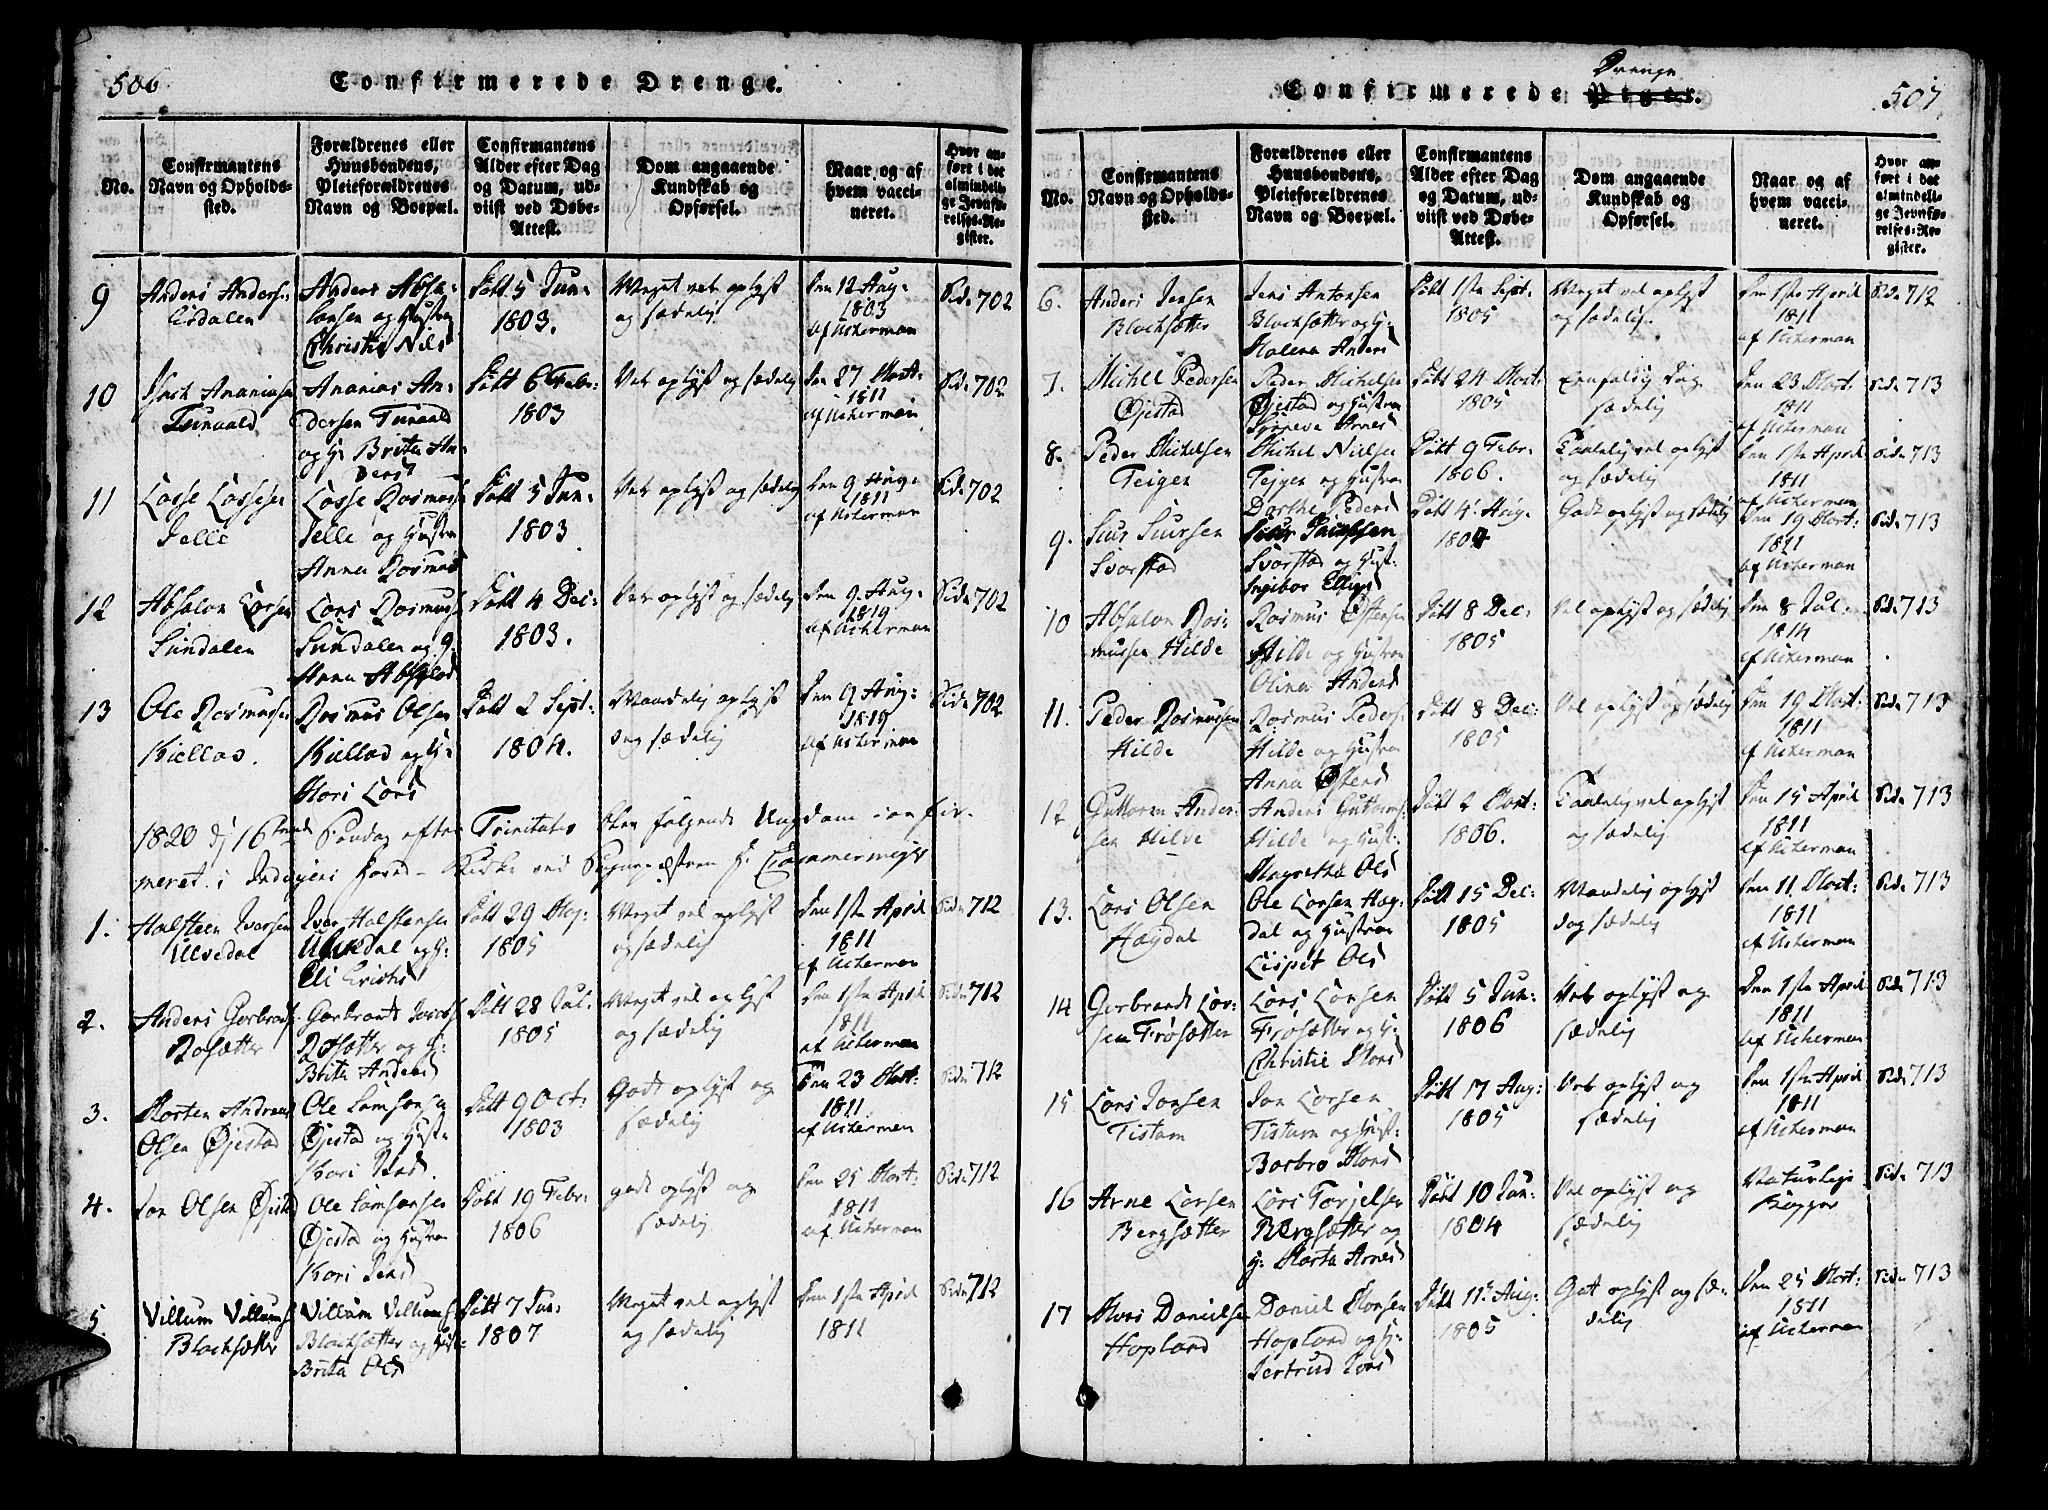 506
Confirmerede Drenge.
No.
Confirmantens
Navn og Opholds-
sted.
Forældrenes eller
Huusbondens,
Pleieforældrenes
Navn og Boepæl.
Confirmantens
Alder efter Dag
og Datum, ud-
viist ved Døbe-
Attest.
Dom angaaende
Kundskab og
Opførsel.
Naar og af
hvem vacci-
neret.
Hvor an-
ført i det
almindeli-
ge Jevnfø-
relses-Re-
gister.
9
Anders Anders:
Anders Absa-
lonsen og Hustru
Christi Nils
Født 5 Jun:
1803.
Meget vel oplyst
og sædelig
Den 12 Aug:
1803
af Ukerman
Pid: 702
10
Isach Ananiasen
Tunvald
Ananias An-
dersen Tunvald
og H: Britha An-
ders
Født 6 Febr:
1803
Vel oplyst og sædelig
Den 27 Mart:
1811
af Ukerman
Pid: 702
11
Lasse Lassesen
Jelle
Lasse Rasmus:
Jelle og Hustru
Anna Rasmus
Født 5 Jun:
1803
Vel oplyst og sædelig
Den 9 Aug:
1811
af Ukerman
Pid: 702
12
Absalon Larsen
Sundalen
Lars Rasmus:
Sundalen og H:
Anna Absalos
Født 4 Dec:
1803.
Vel oplyst og sædelig
Den 9. Aug:
1819
af Ukerman
Pid: 702
13
Ole Rasmussen
Kiellas.
Rasmus Olsen
Kiellas og H:
Mari Lars
Født 2 Sept:
1804.
Maadelig oplyst
dog sædelig
Den 9 Aug:
1819
af Ukerman
Pid: 702
1820 d 16tend Søndag efter Trinitatis blev følgende Ungdom confir-
meret i Indvigens Hoved-Kirke ved Sognepræsten H. Cammermeyer
1.
Halsteen Iversen
Ulvedal
Iver Halstensen
Ulvedal og H:
Eli Christi
Født 29 Maj:
1805
Meget vel oplyst
og sædelig
Den 1ste April
1811
af Ukerman
Pid: 712
2.
Anders Gerbrands:
Rosætter
Gerbrant Jacobs:
Rosætter og H:
Brita Anders
Født 28 Jul:
1805
Meget vel oplyst
og sædelig
Den 1ste April
1811
af Ukerman
Pid: 712
3.
Morten Andreas
Olsen Øjestad
Ole Samsonsen
Øjestad og Hust:
Kari Jens
Født 9 Oct:
1803
Godt oplyst og
sædelig
Den 23 Mart:
1811.
af Ukerman
Pid: 712
4.
Jon Olsen Øjestad
Ole Samsonsen
Øjestad og Hustru
Kari Jens
Født 19 Febr:
1806
godt oplyst og
sædelig
Den 25 Mart:
1811
af Ukerman
Pid: 712
5.
Villum Villums:
Blachsætter
Villum Villums:
Blachsætter og Hust:
Brita Ols
Født 7 Jun:
1807
Meget vel oplyst
og sædelig
Den 1ste April
1811
Pid: 712
Drenge
Confirmerede Piger.
507
No.
Confirmantens
Navn og Opholds-
sted.
Forældrenes eller
Huusbondens,
Pleieforældrenes
Navn og Boepæl.
Confirmantens
Alder efter Dag
og Datum, ud-
viist ved Døbe-
Attest.
Dom angaaende
Kundskab og
Opførsel.
Naar og af
hvem vacci-
neret.
Hvor an-
ført i det
almindeli-
ge Jevnfø-
relses-Re-
gister.
6.
Anders Jensen
Blachsætter
Jens Antonsen
Blachsætter og H:
Malena Anders
Født 1ste Sept:
1805
Meget vel oplyst
og sædelig.
Den 1ste April
1811
af Ukerman
Pid: 712
7.
Michel Pedersen
Øjestad
Peder Michelsen
Øjestad og Hustru
Synneva Arnes
Født 24 Mart:
1805
Eenfoldig dog
sædelig
Den 23 Mart:
1811
af Ukerman
Pid: 713
8.
Peder Michelsen
Teigen
Michel Nielsen
Tejgen og Hustru
Dorthe Peders
Født 9 Febr:
1806.
Taalelig vel oplyst
og sædelig
Den 1ste April
1811
af Ukerman
Pid: 713
9.
Siur Siursen
Svarstad
Siur Jacobsen
Svarstad og Hust:
Ingebor Ellings
Født 4: Aug:
1804
Godt oplyst og sædelig
Den 19 Mart:
1811
af Ukerman
Pid: 713
10
Absalon Ras-
mussen Hilde
Rasmus Østensen
Hilde og Hustru
Olina Anders
Født 8 Dec:
1805
Vel oplyst og sædelig
Den 8 Jul:
1814
af Ukerman
Pid: 713
11.
Peder Rasmussen
Hilde
Rasmus Peders:
Hilde og Hustru
Anna Østens
Født 8 Dec:
1805
Vel oplyst og sædelig
Den 19 Mart:
1811
af Ukerman
Pid: 713
12
Guttorm Ander-
sen Hilde
Anders Guttorms:
Hilde og Hust:
Magretha Ols
Født 2 Mart:
1806.
Taalelig vel oplyst
og sædelig
Den 15 April
1811
af Ukerman
Pid: 713
13.
Lars Olsen
Haydal
Ole Larsen Hag-
dal og Hustru
Lispet Ols
Født 15 Dec:
1805
Maadelig oplyst
dog sædelig
Den 11 Mart:
1811
af Ukerman
Pid: 713
14
Gerbrandt Lar-
sen Frøsætter
Lars Larsen
Frøsætter og H:
Christie Mons
Født 5 Jun:
1806
Vel oplyst og
sædelig
Den 1ste April
1811
af Ukerman
Pid: 713
15
Lars Jonsen
Tistam
Jon Larsen
Tistam og Hust:
Barbro Mons
Født 17 Aug:
1805
Vel oplyst og
sædelig
Den 1ste April
1811
af Ukerman
Pid: 713
16
Arne Larsen
Bergsætter
Lars Torjelsen
Bergsætter og
H: Marta Arnes
Født 10 Jun:
1804
Vel oplyst og
sædelig
Naturlige
Kopper
Pid: 713
17
Mons Danielsen
Hopland
Daniel Monsen
Hopland og H:
Jertrud Lars
Født 11te Aug:
1805
Got oplyst og sæ-
delig
Den 25 Mart:
1811
af Ukerman
Pid: 713